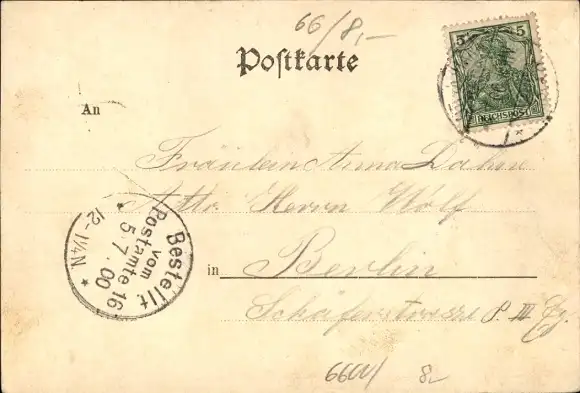 66/8,-
Postkarte
5 5
REICHSPOST
An
Fräulein Anna Dahne
Herrn Wolf
in Berlin
Schäferstrasse P. III
Bestellt
vom
Postamte 16
5.7.00
12-1¼N.
8,-